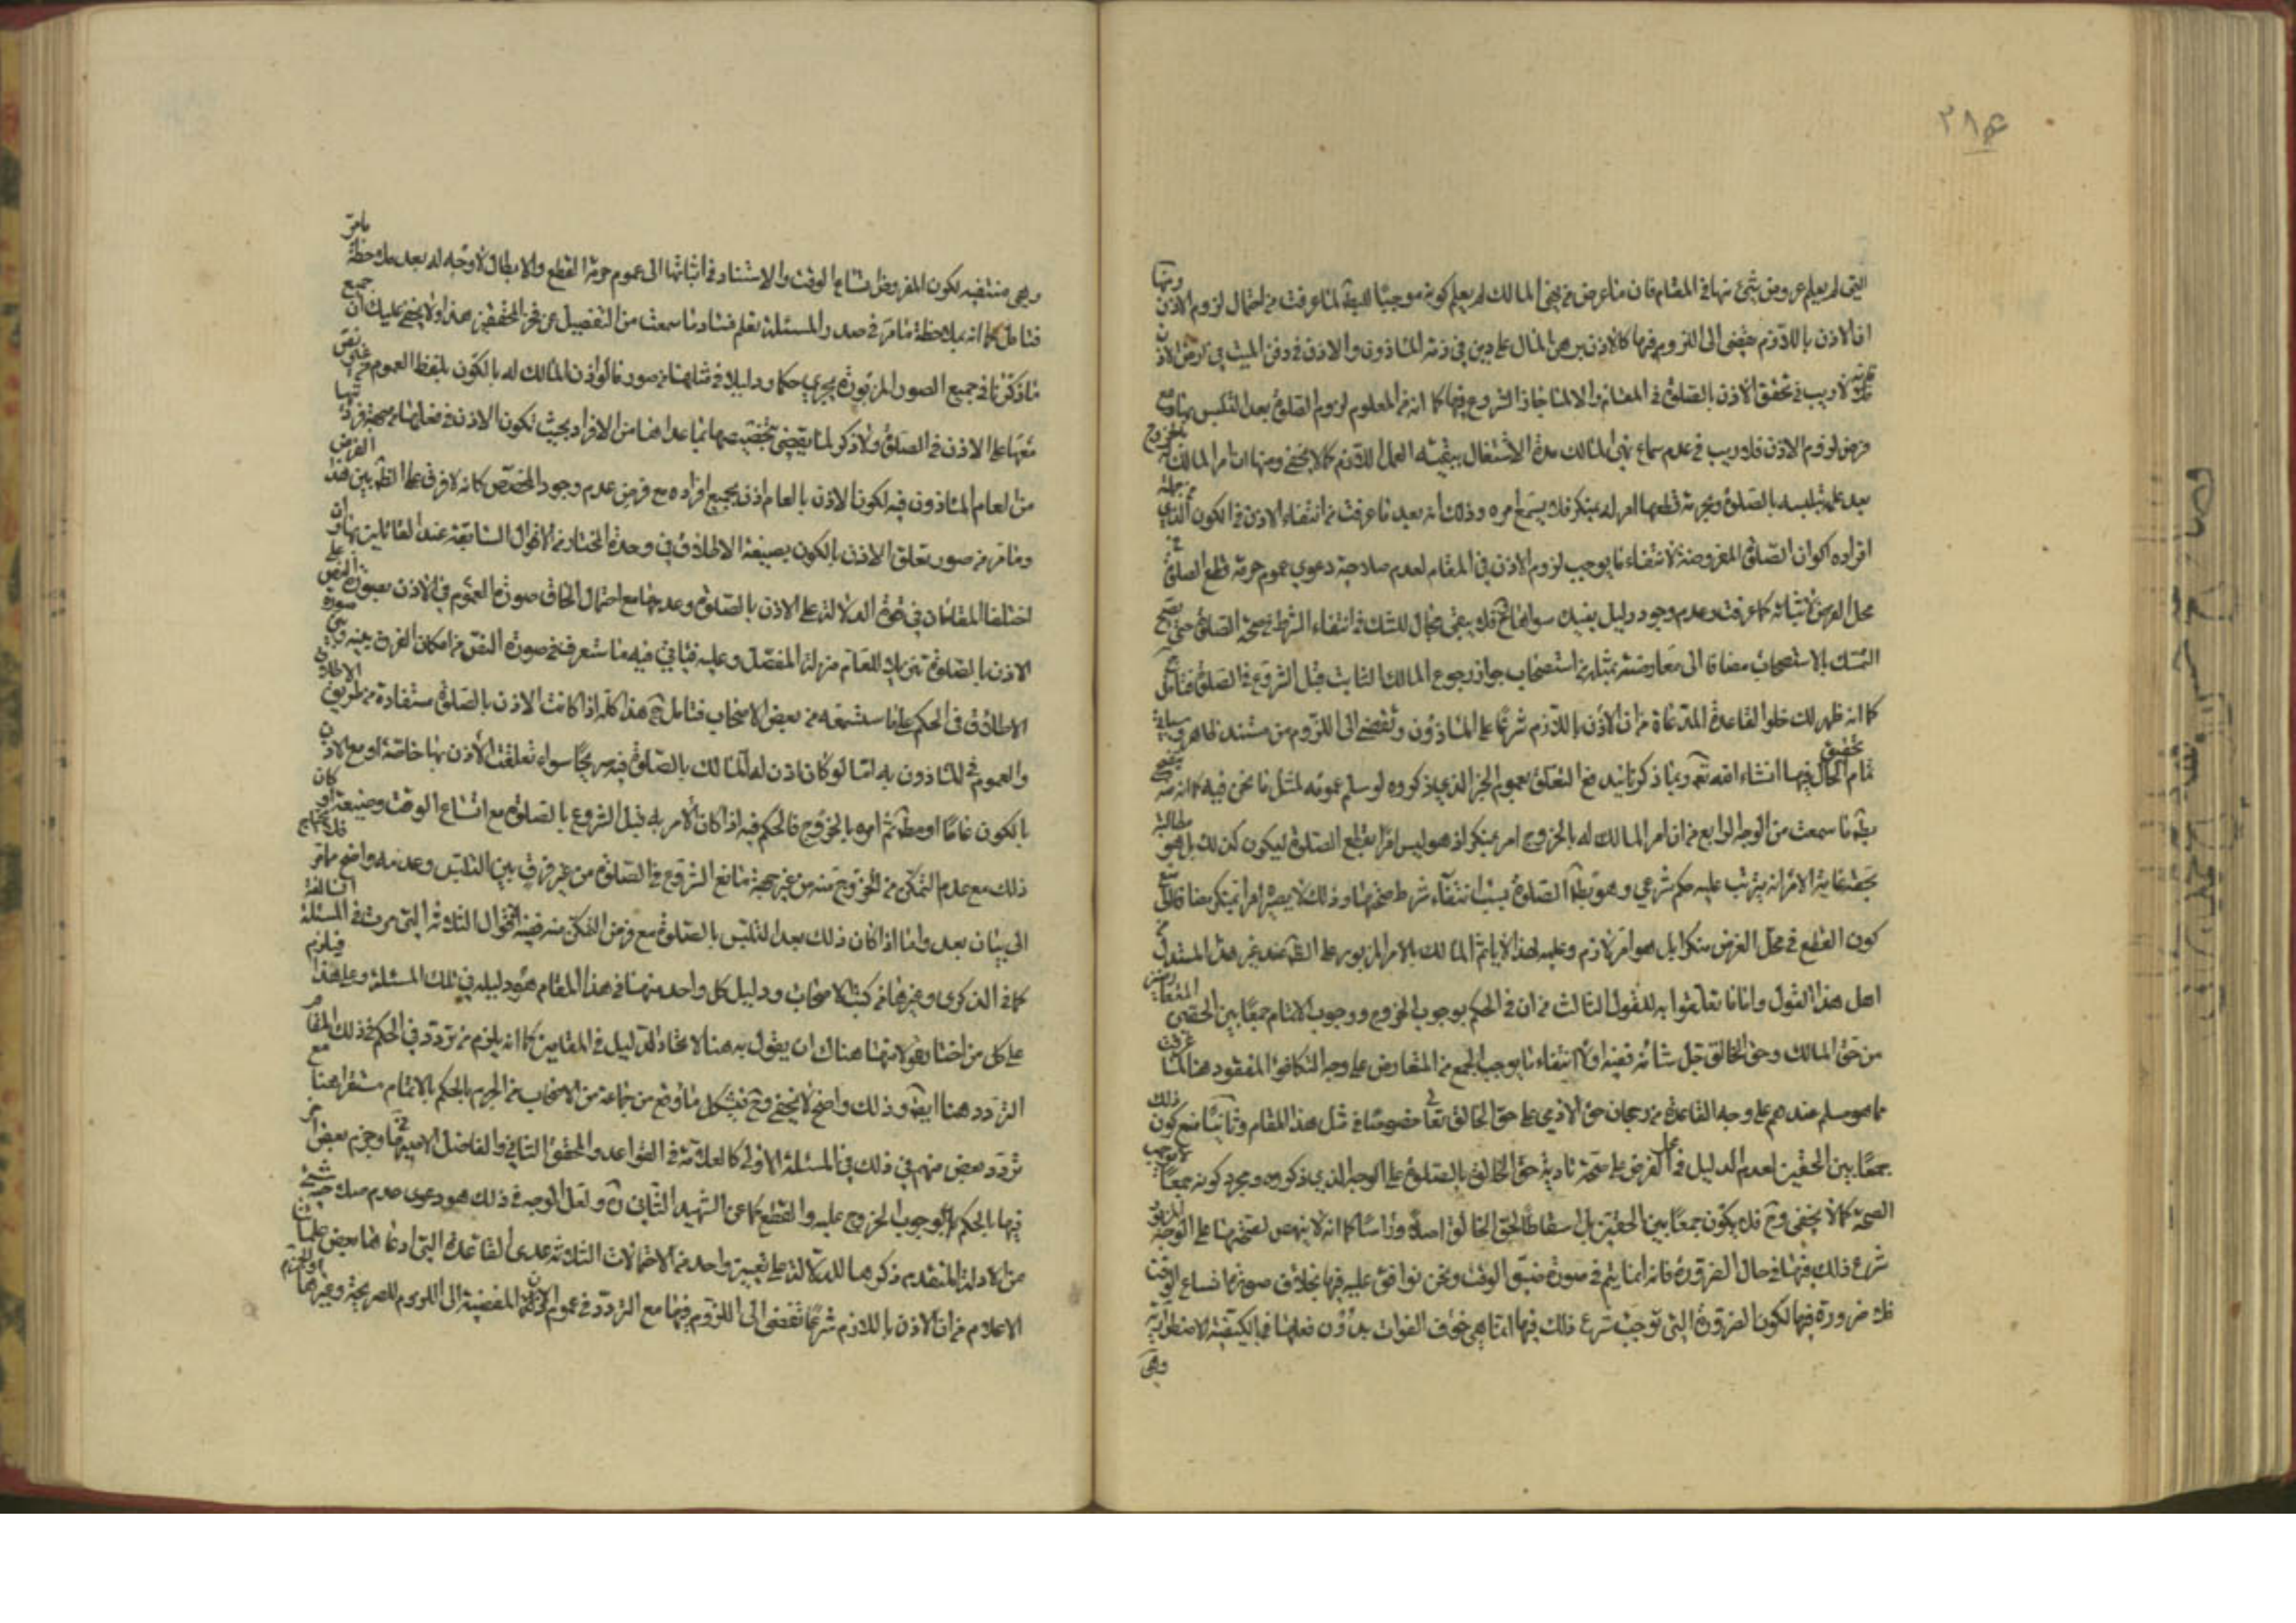 ٣٨٥
التى لم يعلم عروض شئ منها فى المقام فان ما عرض من نهى المالك لم يعلم كونه موجبًا للبطلان لما عرفت من احتمال لزوم الاذن ومنها
ان الاذن باللازم يفضى الى اللزوم فيها كالاذن برهن المال على دين فى ذمة الماذون والاذن فى دفن الميت فى ارض الاذن
لاريب فى تحقق الاذن بالصلوة فى المقام والا لما جاز الشروع فيها كما انه من المعلوم لزوم الصلوة بعد التلبس بها ومع
فرض لزوم الاذن فلا ريب فى عدم سماع نهى المالك مدة الاشتغال ببقية العمل اللازم كما لا يخفى ومنها ان امر المالك بالخروج
بعد علمه بتلبسه بالصلوة وبحرمة قطعها امر له بمنكر فلا يسمع امره وذلك انه بعد ما عرفت من انتفاء الاذن فى الكون الذى من جملة
افراده اكوان الصلوة المفروضة لانتفاء ما يوجب لزوم الاذن فى المقام لعدم صلاحية دعوى عموم حرمة قطع الصلوة فى
محل الفرض لاثباته كما عرفت وعدم وجود دليل يفيد سواها فلا يبقى مجال للشك فى انتفاء الشرط فى صحة الصلوة حتى يصح
التمسك بالاستصحاب مضافا الى معارضته بمثله من استصحاب جواز رجوع المالك الثابت قبل الشروع فى الصلوة فتامل مع
كما انه ظهر لك خلو القاعدة المدعاة من ان الاذن باللازم شرعًا على الماذون وتفضى الى اللزوم من مستند ظاهر وسياتى
تمام تحقيق الحال فيها انشاء الله تعالى وبما ذكرنا يندفع التعلق بعموم الخبر الذى ذكروه لو سلم عمومه لمثل ما نحن فيه كما انه
بطلان ما سمعت من الوجه الرابع من ان امر المالك له بالخروج امر بمنكر اذ هو ليس امرًا بقطع الصلوة ليكون كذلك بل هو مطالبة
بحقه غاية الامر انه يترتب عليه حكم شرعى وهو بطلان الصلوة بسبب انتفاء شرط صحتها وذلك لا يصيره امرا بمنكر مضافا الى منع
كون القطع فى محل الفرض منكرًا بل هو امر لازم وعليه لهذا لا ياثم المالك بالامر المزبور على الظاهر عند غير هذا المستدل من
اهل هذا القول واما ما تعلقوا به للقول الثالث من ان فى الحكم بوجوب الخروج ووجوب الاتمام جمعًا بين الحقين المتعارضين
من حق المالك وحق الخالق جل شانه ففيه اولًا انتفاء ما يوجب الجمع من التعارض على وجه التكافؤ المفقود هنا لما عرفت
مما هو مسلم عندهم على وجه القاعدة من رجحان حق الادمى على حق الخالق تعالى خصوصًا فى مثل هذا المقام وثانيًا منع كون ذلك
جمعًا بين الحقين لعدم الدليل فى محل الفرض على صحة تادية حق الخالق بالصلوة على الوجه الذى ذكروه ومجرد كونه جمعًا لا يوجب
الصحة كما لا يخفى وح فلا يكون جمعًا بين الحقين بل اسقاطًا لحق الخالق اصلًا وراسًا كما انه لا ينهض لصحتها على الوجه المزبور
شرع ذلك فيها فى حال الضرورة فانه انما يتم فى صورة ضيق الوقت ونحن نوافق عليه فيها بخلاف صورة اتساع الوقت
فلا ضرورة فيها لكون الضرورة التى توجب شرع ذلك فيها انما هى خوف الفوات بدون فعلها بالكيفية الاضطرارية
وهى
وهى منتفية لكون المفروض اتساع الوقت والاستناد فى اثباتها الى عموم حرمة القطع والابطال لا وجه له بعد ملاحظة مامرّ
فتامل كما انه بملاحظة مامرّ فى صدر المسئلة تعلم فساد ما سمعت من التفصيل عن فخر المحققين هذا ولا يخفى عليك ان جميع
ما ذكرنا فى جميع الصور المزبورة يجرى حكما ودليلا فى مثلها من صور ما لو اذن المالك له بالكون بلفظ العموم من غير نص
منهما على الاذن فى الصلوة ولا ذكر لما يقتضى تخصيصها بما عداها من الافراد بحيث تكون الاذن فى فعلها من جهة فرديتها
من العام الماذون فيه لكون الاذن بالعام اذن بجميع افراده مع فرض عدم وجود المخصص كما انه لا فرق على الظاهر بين هذا الفرض
ومامرّ من صور تعلق الاذن بالكون بصيغة الاطلاق فى وحدة المختار من الاقوال السابقة عند القائلين بها وان
اختلف المقامان فى قوة الدلالة على الاذن بالصلوة وعدمها مع احتمال الحاق صورة العموم فى الاذن بصورة النص على
الاذن بالصلوة تنزيلا للعام منزلة المفصل وعليه فياتى فيه ما ستعرف فى صورة النص من امكان الفرق بينه وبين صورة
الاطلاق فى الحكم على ما ستسمعه من بعض الاصحاب فتامل هذا كله اذا كانت الاذن بالصلوة مستفادة من طريق الاطلاق
والعموم فى الماذون به اما لو كان اذن له المالك بالصلوة فيه صريحًا سواء تعلقت الاذن بها خاصة او مع الاذن
بالكون عامًا او مطلقا ثم امره بالخروج فالحكم فيه اذا كان الامر به قبل الشروع بالصلوة مع اتساع الوقت وضيقه او كان
ذلك مع عدم التمكن من الخروج منه من غير جهة مانع الشروع فى الصلوة من غير فرق بين التلبس وعدمه واضح مامر فلا يحتاج
الى بيان بعد واما اذا كان ذلك بعد التلبس بالصلوة مع فرض التمكن منه ففيه الاقوال الثلاثة التى مرت فى المسئلة السالفة
كما فى الذكرى وغيرها من كتب الاصحاب ودليل كل واحد منها فى هذا المقام هو دليله فى تلك المسئلة وعلى هذا فيلزم
على كل من اختار قولا منها هناك ان يقول به هنا لاتحاد الدليل فى المقامين كما انه يلزم من تردد فى الحكم فى ذلك المقام
التردد هنا ايضا وذلك واضح لا يخفى وح فيشكل ما وقع من جماعة من الاصحاب من الجزم بالحكم بالاتمام مستقرا هنا مع
تردد بعض منهم فى ذلك فى المسئلة الاولى كالعلامة فى القواعد والمحقق الثانى والفاضل الاصبهانى وجزم بعض اخر
فيها بالحكم بوجوب الخروج عليه والقطع كما عن الشهيد الثانى ره ولعل الوجه فى ذلك هو دعوى عدم صلاحية شئ
من الادلة المتقدم ذكرها للدلالة على تعيين واحد من الاحتمالات الثلاثة عدى القاعدة التى ادعاها بعض علمائنا
الاعلام من ان الاذن باللازم شرعًا تفضى الى اللزوم فيها مع التردد فى عموم الاذن المفضية الى اللزوم للصريحة وغيرها او الجزم